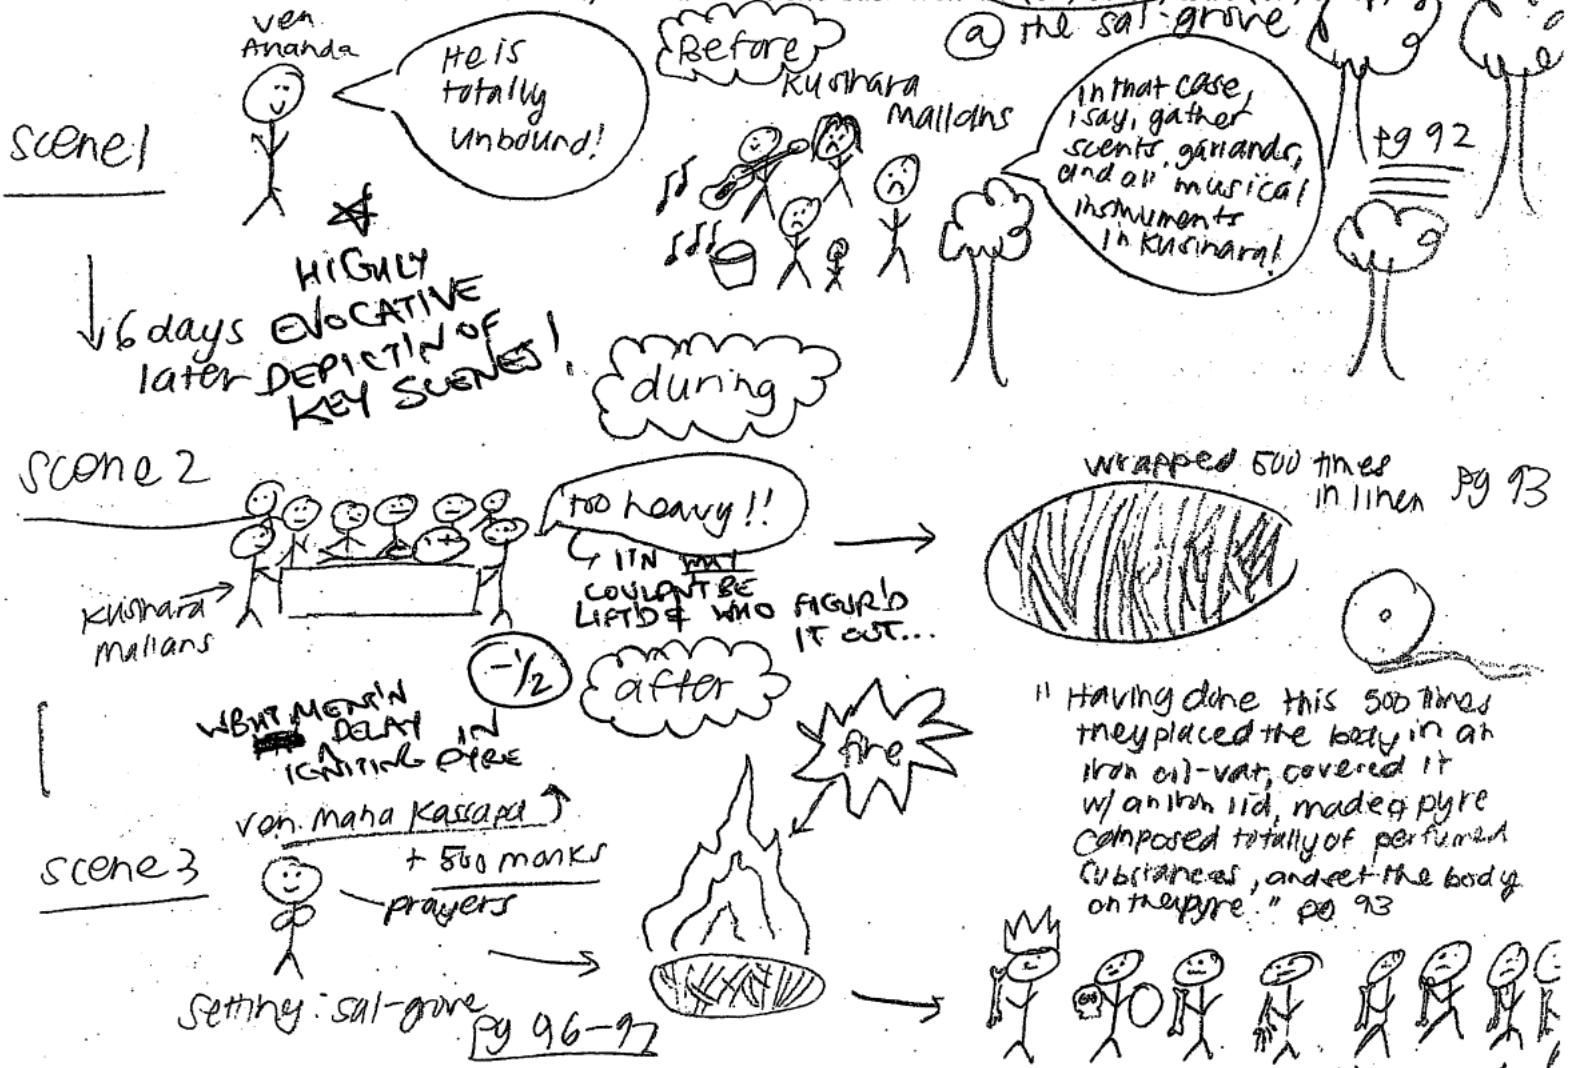 @ the sal-grove
ven.
Ananda
He is
totally
unbound!
Before
Kusinara
Mallans
In that case,
I say, gather
scents, garlands,
and all musical
instruments
in Kusinara!
pg 92
scene 1
6 days
later
HIGHLY
EVOCATIVE
DEPICT'N OF
KEY SCENES!
during
scene 2
too heavy!!
Kusinara
mallans
COULDN'T BE
LIFT'D & WHO FIGUR'D
IT OUT...
wrapped 500 times
in linen
pg 93
-1/2
after
MENT'N
DELAY IN
IGNITING PYRE
fire
" Having done this 500 times
they placed the body in an
iron oil-vat, covered it
w/ an iron lid, made a pyre
composed totally of perfumed
substances, and set the body
on the pyre." pg 93
ven. Maha Kassapa
+ 500 monks
scene 3
prayers
setting: sal-grove
pg 96-97